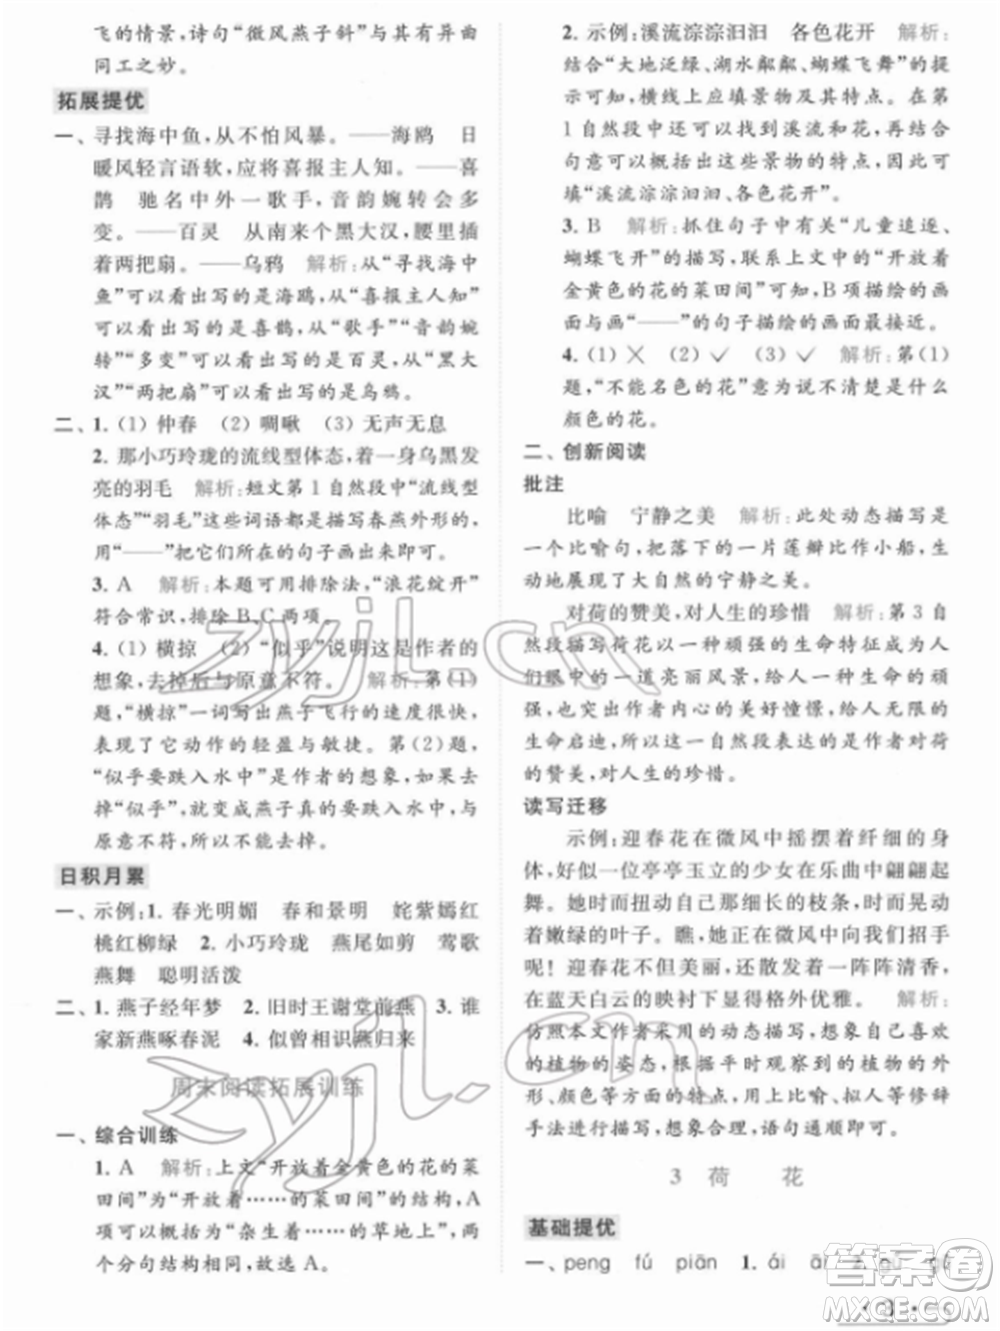 飞的情景,诗句“微风燕子斜”与其有异曲
同工之妙。
拓展提优
一、寻找海中鱼,从不怕风暴。——海鸥 日
暖风轻言语软,应将喜报主人知。——喜
鹊 驰名中外一歌手,音韵婉转会多
变。——百灵 从南来个黑大汉,腰里插
着两把扇。——乌鸦 解析:从“寻找海中
鱼”可以看出写的是海鸥,从“喜报主人知”
可以看出写的是喜鹊,从“歌手”“音韵婉
转”“多变”可以看出写的是百灵,从“黑大
汉”“两把扇”可以看出写的是乌鸦。
二、1. (1) 仲春 (2) 啁啾 (3) 无声无息
2. 那小巧玲珑的流线型体态,着一身乌黑发
亮的羽毛 解析:短文第1自然段中“流线型
体态”“羽毛”这些词语都是描写春燕外形的,
用“——”把它们所在的句子画出来即可。
3. A 解析:本题可用排除法,“浪花绽开”
符合常识,排除B、C两项。
4. (1) 横掠 (2) “似乎”说明这是作者的
想象,去掉后与原意不符。 解析:第(1)
题,“横掠”一词写出燕子飞行的速度很快,
表现了它动作的轻盈与敏捷。第(2)题,
“似乎要跌入水中”是作者的想象,如果去
掉“似乎”,就变成燕子真的要跌入水中,与
原意不符,所以不能去掉。
日积月累
一、示例:1. 春光明媚 春和景明 姹紫嫣红
桃红柳绿 2. 小巧玲珑 燕尾如剪 莺歌
燕舞 聪明活泼
二、1. 燕子经年梦 2. 旧时王谢堂前燕 3. 谁
家新燕啄春泥 4. 似曾相识燕归来
周末阅读拓展训练
一、综合训练
1. A 解析:上文“开放着金黄色的花的菜
田间”为“开放着……的菜田间”的结构,A
项可以概括为“杂生着……的草地上”,两
个分句结构相同,故选A。
2. 示例:溪流淙淙汩汩 各色花开 解析:
结合“大地泛绿、湖水粼粼、蝴蝶飞舞”的提
示可知,横线上应填景物及其特点。在第
1自然段中还可以找到溪流和花,再结合
句意可以概括出这些景物的特点,因此可
填“溪流淙淙汩汩、各色花开”。
3. B 解析:抓住句子中有关“儿童追逐、
蝴蝶飞开”的描写,联系上文中的“开放着
金黄色的花的菜田间”可知,B项描绘的画
面与画“——”的句子描绘的画面最接近。
4. (1) ✕ (2) ✓ (3) ✓ 解析:第(1)
题,“不能名色的花”意为说不清楚是什么
颜色的花。
二、创新阅读
批注
比喻 宁静之美 解析:此处动态描写是
一个比喻句,把落下的一片莲瓣比作小船,生
动地展现了大自然的宁静之美。
对荷的赞美,对人生的珍惜 解析:第3自
然段描写荷花以一种顽强的生命特征成为人
们眼中的一道亮丽风景,表现了生命的顽
强,也突出作者内心的美好憧憬,作者从荷的
生命启迪,可以看出这一自然段表达的是作者对荷的
赞美,对人生的珍惜。
读写迁移
示例:迎春花在微风中摇摆着纤细的身
体,好似一位亭亭玉立的少女在乐曲中翩翩起
舞。她时而扭动身姿,展示她那细长的枝条,时
而露出嫩绿的叶子。瞧,她在微风中向我们招手
呢!迎春花不但美丽,还散发着一阵阵清香,
在蓝天白云的映衬下显得格外优雅。 解析:
仿照本文作者采用的动态描写,想象自己喜欢
的植物的姿态,结合平时观察到的植物的特
点,可以运用恰当的比喻、拟人等修辞
手法进行描写,想象合理,语句通顺即可。
3 荷 花
基础提优
一、peng fú piān 1. ái
答案圈
zyjl.cn
zyjl.cn